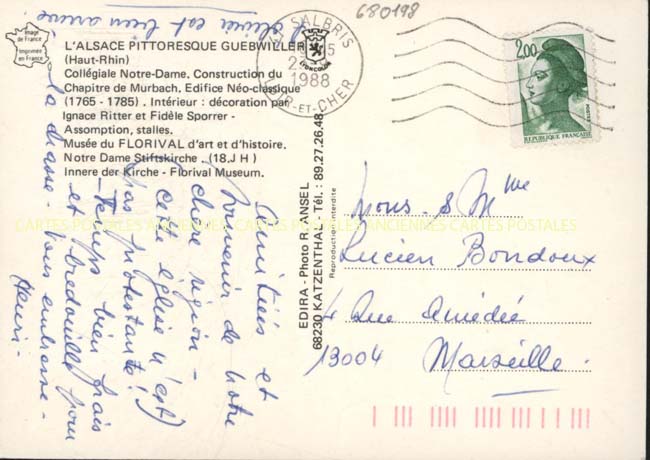 680198
L'olivier est bien arrivé
Image
de France
Imprimée
en France
L'ALSACE PITTORESQUE GUEBWILLER
(Haut-Rhin)
Collégiale Notre-Dame. Construction du
Chapitre de Murbach. Edifice Néo-classique
(1765 - 1785). Intérieur : décoration par
Ignace Ritter et Fidèle Sporrer -
Assomption, stalles.
Musée du FLORIVAL d'art et d'histoire.
Notre Dame Stiftskirche. (18.J H)
Innere der Kirche - Florival Museum.
SALBRIS
1988
LOIR-ET-CHER
2,00
REPUBLIQUE FRANÇAISE
Amitiés et
souvenir de notre
chère région -
(cette église n'est
pas protestante!)
- Temps bien frais
et bredouille pour
la chasse - Vous embrasse -
Henri -
EDIRA - Photo R. ANSEL
68230 KATZENTHAL - Tél. : 89.27.26.48
Reproduction interdite
Mons. & Mme
Lucien Bondoux
4 Rue Amédée
13004 Marseille.
CARTES POSTALES ANCIENNES CARTES POSTALES